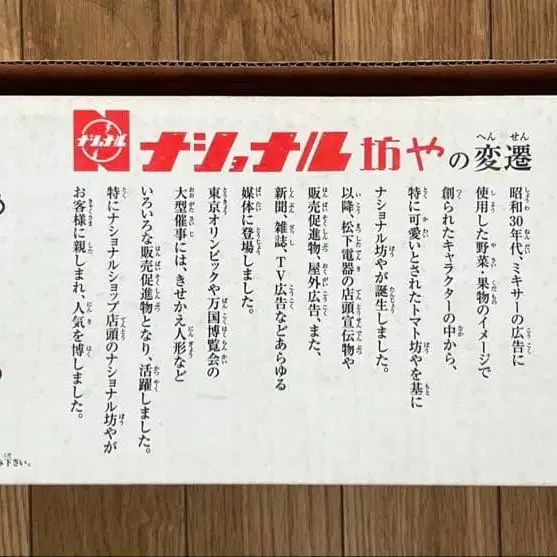 ナショナル
ナショナル坊やの変遷
昭和30年代、ミキサーの広告に
使用した野菜・果物のイメージで
創られたキャラクターの中から、
特に可愛いとされたトマト坊やを基に
ナショナル坊やが誕生しました。
以降、松下電器の店頭宣伝物や
販売促進物、屋外広告、また、
新聞、雑誌、TV広告などあらゆる
媒体に登場しました。
東京オリンピックや万国博覧会の
大型催事には、きせかえ人形など
いろいろな販売促進物となり、活躍しました。
特にナショナルショップ店頭のナショナル坊やが
お客様に親しまれ、人気を博しました。
下さい。